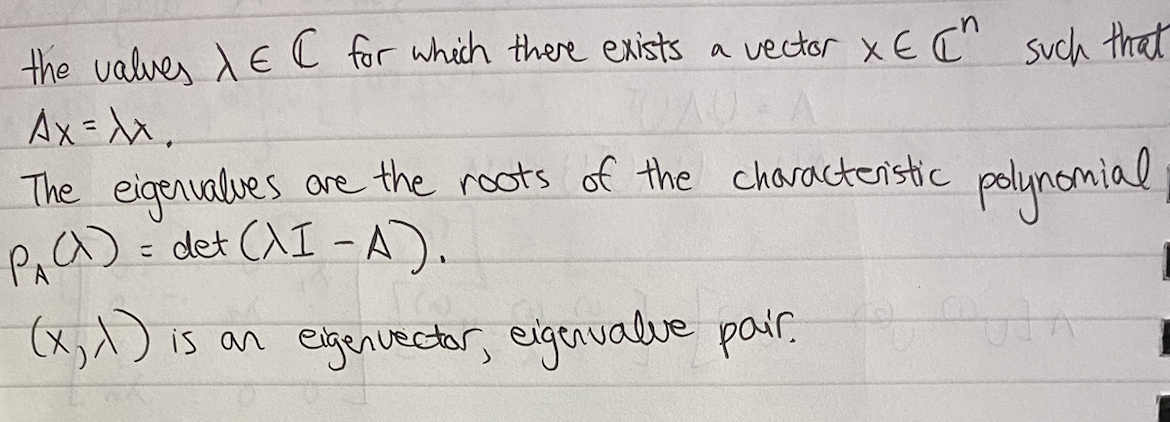 the values λ ∈ ℂ for which there exists a vector x ∈ ℂⁿ such that
Ax = λx.
The eigenvalues are the roots of the characteristic polynomial
p_A(λ) = det(λI - A).
(x, λ) is an eigenvector, eigenvalue pair.